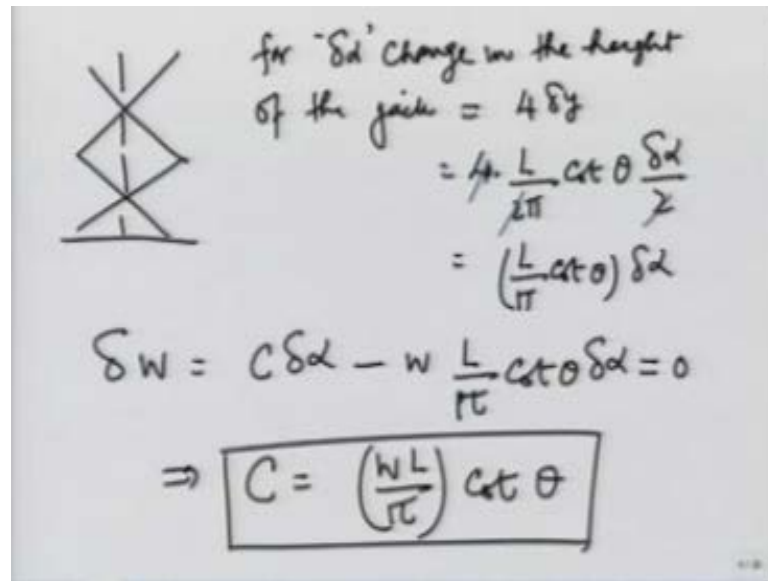 for 'δα' change in the height
of the jack = 4 δy
= 4. L/2π cot θ δα/2
= (L/π cot θ) δα
δW = C δα - W L/π cot θ δα = 0
⇒ C = (WL/π) cot θ